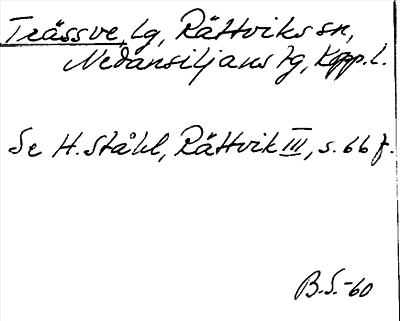 Trässve, lg, Rättviks sn,
Nedansiljans tg, Kopp. l.
Se H. Ståhl, Rättvik III, s. 66 f.
B.S.-60